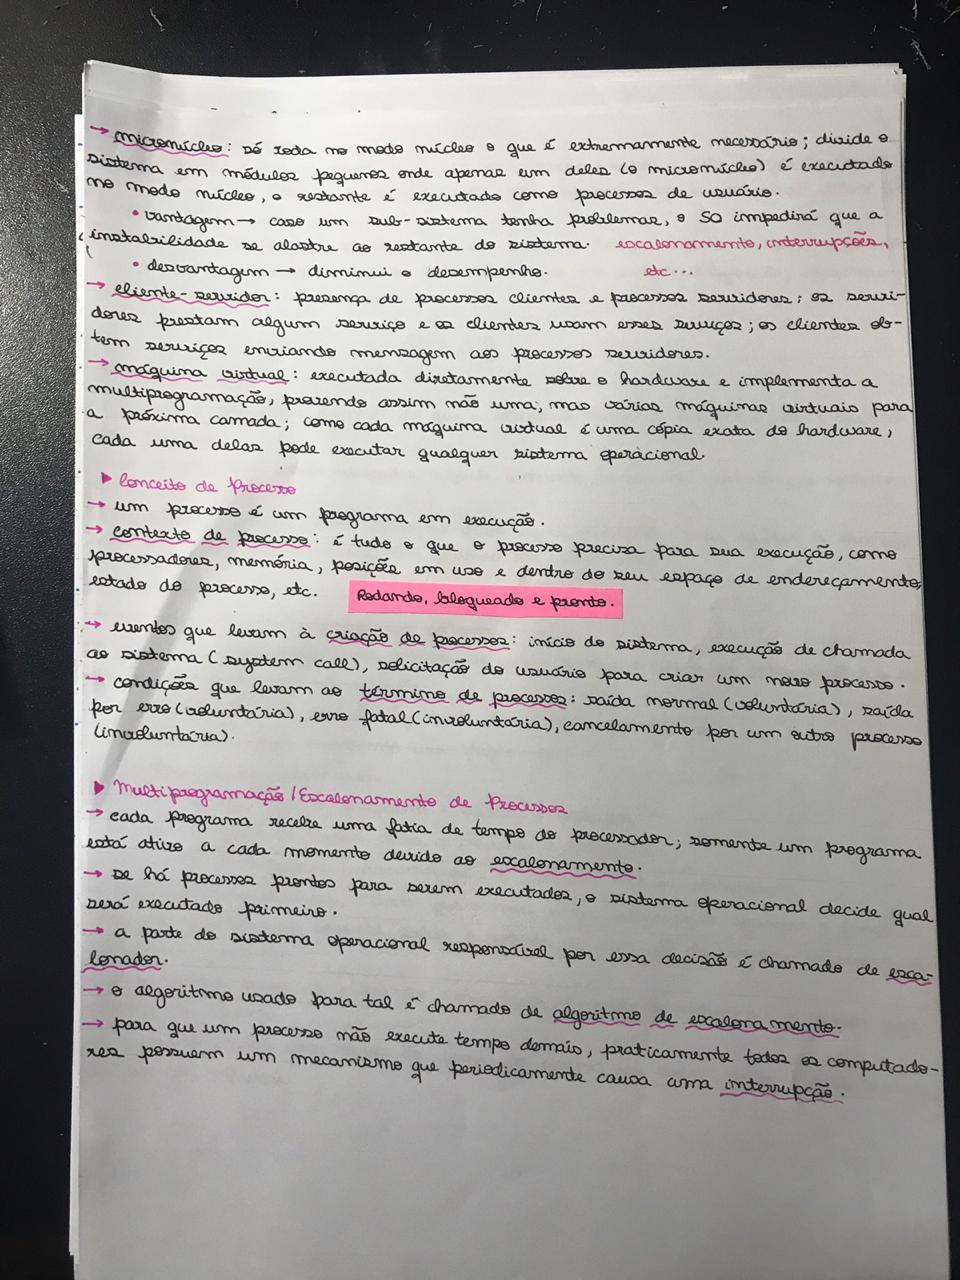 → micronúcleo: só roda no modo núcleo o que é extremamente necessário; divide o
sistema em módulos pequenos onde apenas um deles (o micronúcleo) é executado
no modo núcleo, o restante é executado como processos de usuário.
• vantagem → caso um sub-sistema tenha problemas, o SO impedirá que a
instabilidade se alastre ao restante do sistema. escalonamento, interrupções,
• desvantagem → diminui o desempenho. etc...
→ cliente-servidor: presença de processos clientes e processos servidores; os servi-
dores prestam algum serviço e os clientes usam esses serviços; os clientes ob-
tem serviços enviando mensagem aos processos servidores.
→ máquina virtual: executada diretamente sobre o hardware e implementa a
multiprogramação, provendo assim não uma, mas várias máquinas virtuais para
a próxima camada; como cada máquina virtual é uma cópia exata do hardware,
cada uma delas pode executar qualquer sistema operacional.
▶ Conceito de Processo
→ um processo é um programa em execução.
→ contexto de processo: é tudo o que o processo precisa para sua execução, como
processadores, memória, posições em uso e dentro do seu espaço de endereçamento,
estado do processo, etc. Rodando, bloqueado e pronto.
→ eventos que levam à criação de processos: início do sistema, execução de chamada
ao sistema (system call), solicitação do usuário para criar um novo processo.
→ condições que levam ao término de processos: saída normal (voluntária), saída
por erro (voluntária), erro fatal (involuntária), cancelamento por um outro processo
(involuntária).
▶ Multiprogramação / Escalonamento de Processos
→ cada programa recebe uma fatia de tempo do processador; somente um programa
está ativo a cada momento devido ao escalonamento.
→ se há processos prontos para serem executados, o sistema operacional decide qual
será executado primeiro.
→ a parte do sistema operacional responsável por essa decisão é chamado de esca-
lonador.
→ o algoritmo usado para tal é chamado de algoritmo de escalonamento.
→ para que um processo não execute tempo demais, praticamente todos os computado-
res possuem um mecanismo que periodicamente causa uma interrupção.